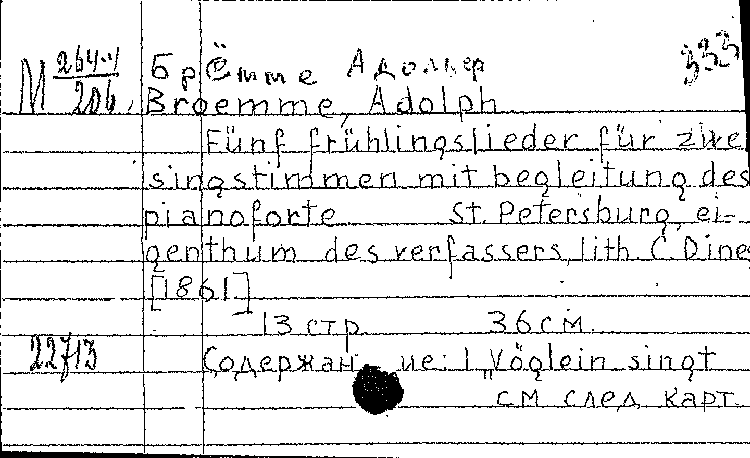 М 264-4/206. Брёмме Адольф 333
Broemme, Adolph
Fünf frühlingslieder für zwei
singstimmen mit begleitung des
pianoforte St. Petersburg, ei-
genthum des verfassers, lith. C. Dine
[1861]
13 стр. 36 см.
22713 Содержание: 1 „Vöglein singt
см след карт.